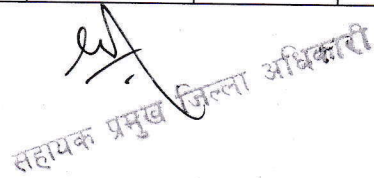 सहायक प्रमुख जिल्ला अधिकारी